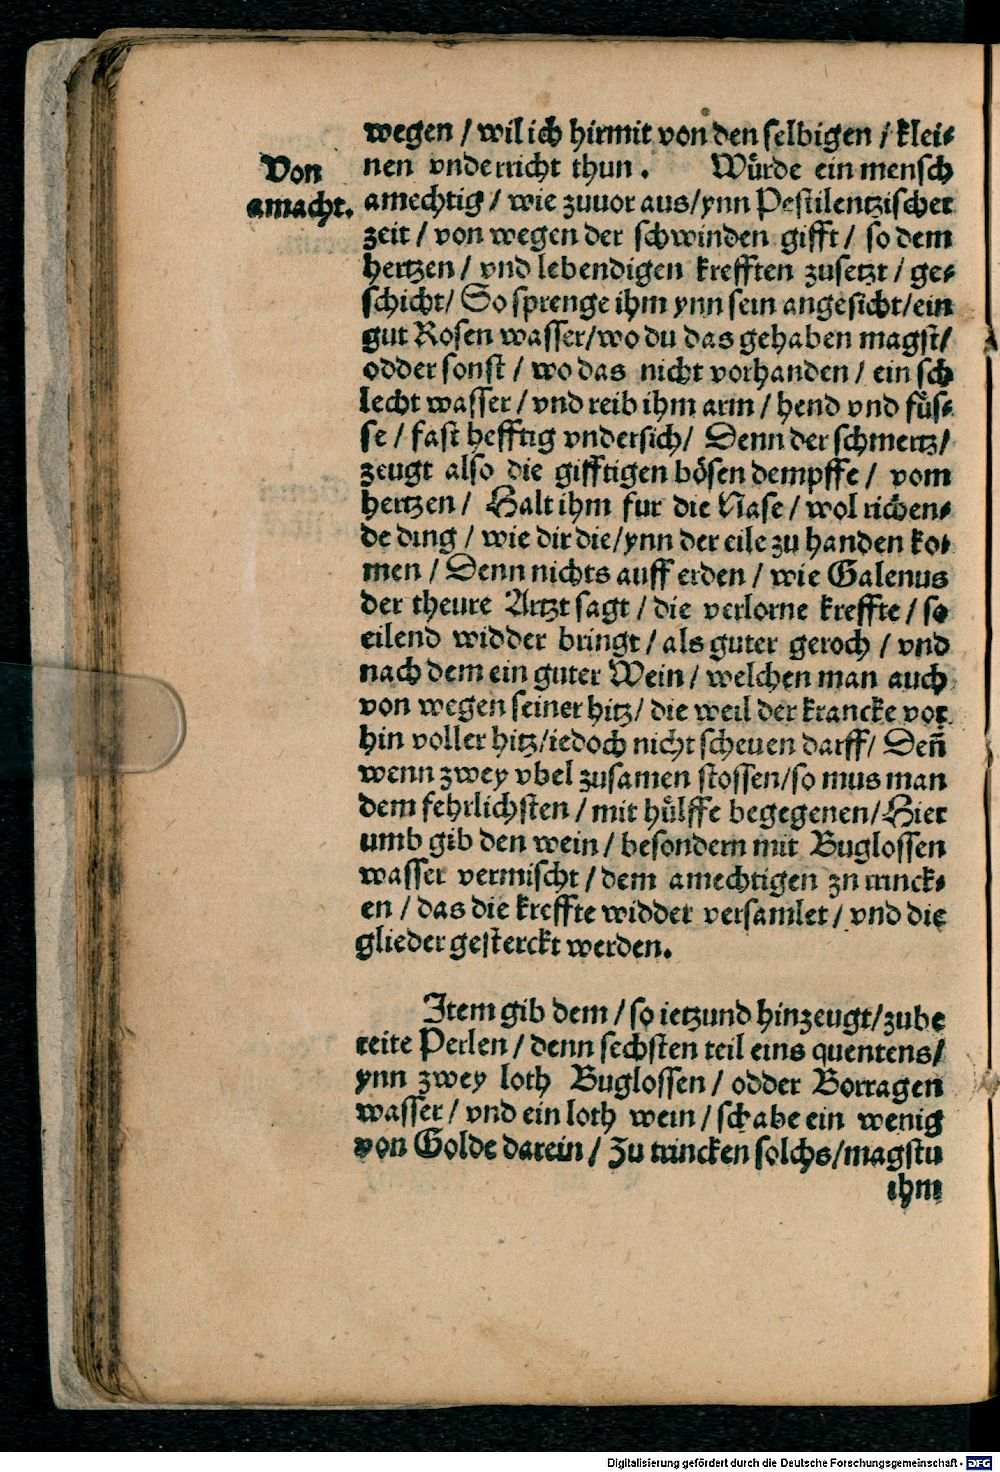 wegen / wil ich hirmit von den selbigen / klei⸗
Von
amacht.
nen vnderricht thun. Würde ein mensch
amechtig / wie zuuor aus/ynn Pestilentzischer
zeit / von wegen der schwinden gifft / so dem
hertzen / vnd lebendigen krefften zusetzt / ge⸗
schicht/ So sprenge ihm ynn sein angesicht/ein
gut Rosen wasser/wo du das gehaben magst/
odder sonst / wo das nicht vorhanden / ein sch
lecht wasser / vnd reib ihm arm / hend vnd füs⸗
se / fast hefftig vndersich/ Denn der schmertz/
zeugt also die gifftigen bösen dempffe / vom
hertzen / Halt ihm fur die Nase / wol richen⸗
de ding / wie dir die/ynn der eile zu handen ko⸗
men / Denn nichts auff erden / wie Galenus
der theure Artzt sagt / die verlorne kreffte / so
eilend widder bringt / als guter geroch / vnd
nach dem ein guter Wein / welchen man auch
von wegen seiner hitz/ die weil der krancke vor
hin voller hitz/iedoch nicht scheuen darff/ Deñ
wenn zwey vbel zusamen stossen/so mus man
dem fehrlichsten / mit hülffe begegenen/Hier
umb gib den wein / besondern mit Buglossen
wasser vermischt / dem amechtigen zn trinck⸗
en / das die kreffte widder versamlet / vnd die
glieder gesterckt werden.
Item gib dem / so ietzund hinzeugt/zube
reite Perlen / denn sechsten teil eins quentens/
ynn zwey loth Buglossen / odder Borragen
wasser / vnd ein loth wein / schabe ein wenig
von Golde darein / Zu trincken solchs/magstu
ihm
Digitalisierung gefördert durch die Deutsche Forschungsgemeinschaft - DFG